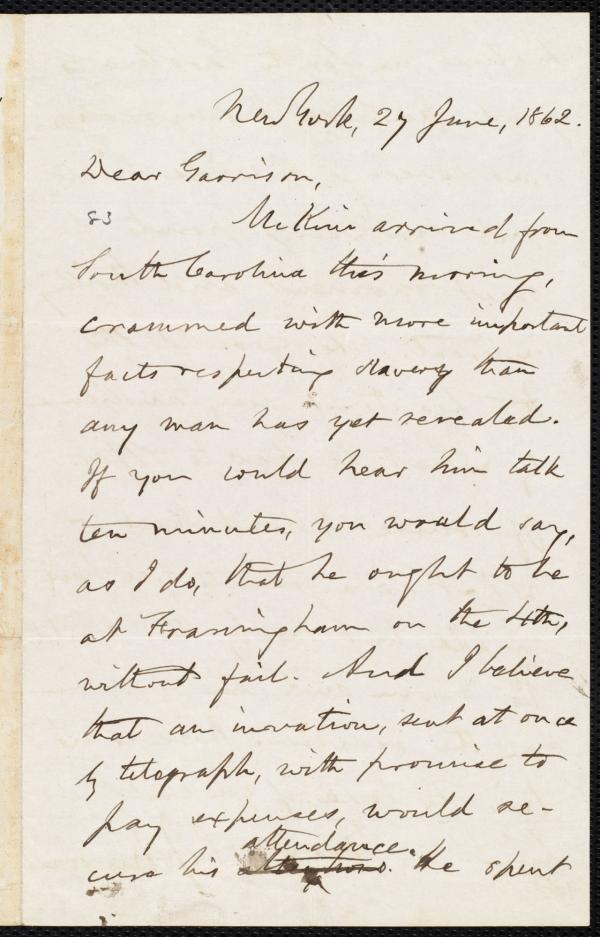 New York, 27 June, 1862.
Dear Garrison,
83 McKim arrived from
South Carolina this morning,
crammed with more important
facts respecting slavery than
any man has yet revealed.
If you could hear him talk
ten minutes, you would say,
as I do, that he ought to be
at Framingham on the 4th,
without fail. And I believe
that an invation, sent at once
by telegraph, with promise to
pay expenses, would se-
cure his attendance. He spent